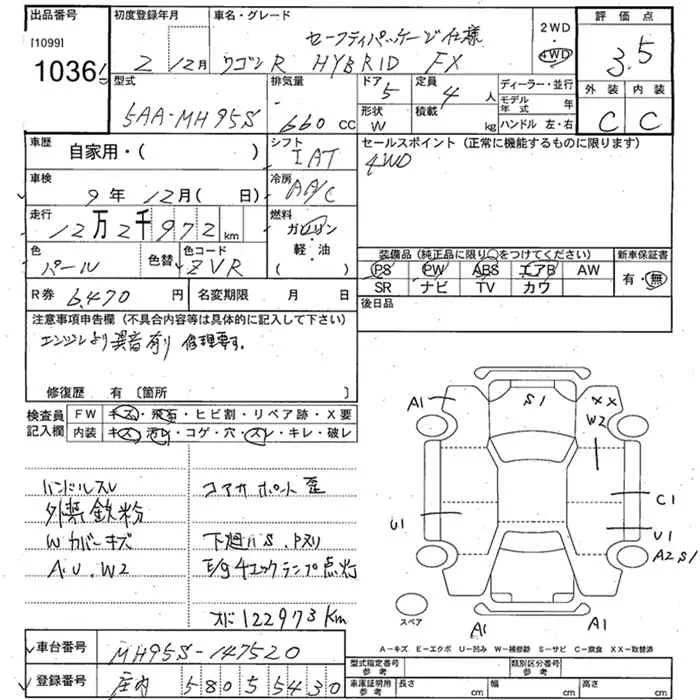 出品番号 初度登録年月 車名・グレード 2WD 評価点
[1099] セーフティパッケージ仕様 ・
1036 2 12月 ワゴンR HYBRID FX 4WD 3.5
型式 排気量 ドア 定員 ディーラー・並行 外装 内装
5AA-MH95S 660 cc 5 4 人 モデル年式 年
形状 積載 C C
W kg ハンドル 左・右
車歴 自家用・( ) シフト セールスポイント (正常に機能するものに限ります)
IAT 4WD
車検 9年 12月( 日) 冷房 AA/C
走行 12万2千972 km 燃料 ガソリン
・
軽・油
色 色替 色コード ( ) 装備品 (純正品に限り○をつけてください) 新車保証書
パール ZVR PS PW ABS エアB AW 有・無
R券 6,470 円 名変期限 月 日 SR ナビ TV カワ
注意事項申告欄 (不具合内容等は具体的に記入して下さい) 後日品
エンジンより異音有り 修理要す。
修復歴 有 〔箇所 〕
検査員 FW キズ・飛石・ヒビ割・リペア跡・X要
記入欄 内装 キズ・汚レ・コゲ・穴・スレ・キレ・破レ
A1 S1 XX
W2
ハンドルスレ コアサポート歪
外装鉄粉 C1
Wカバーキズ 下廻りS、Pヌリ U1 U1
A.U.W2 E/gチェックランプ点灯 A2 S1
メド122973Km スペア A1 A1
A-キズ E-エクボ U-凹み W-補修跡 S-サビ C-腐食 XX-取替済
車台番号 MH95S-147520
登録番号 庄内 580 5 5430
型式指定番号 参考 類別区分番号 参考
車庫証明用 参考 長さ cm 幅 cm 高さ cm